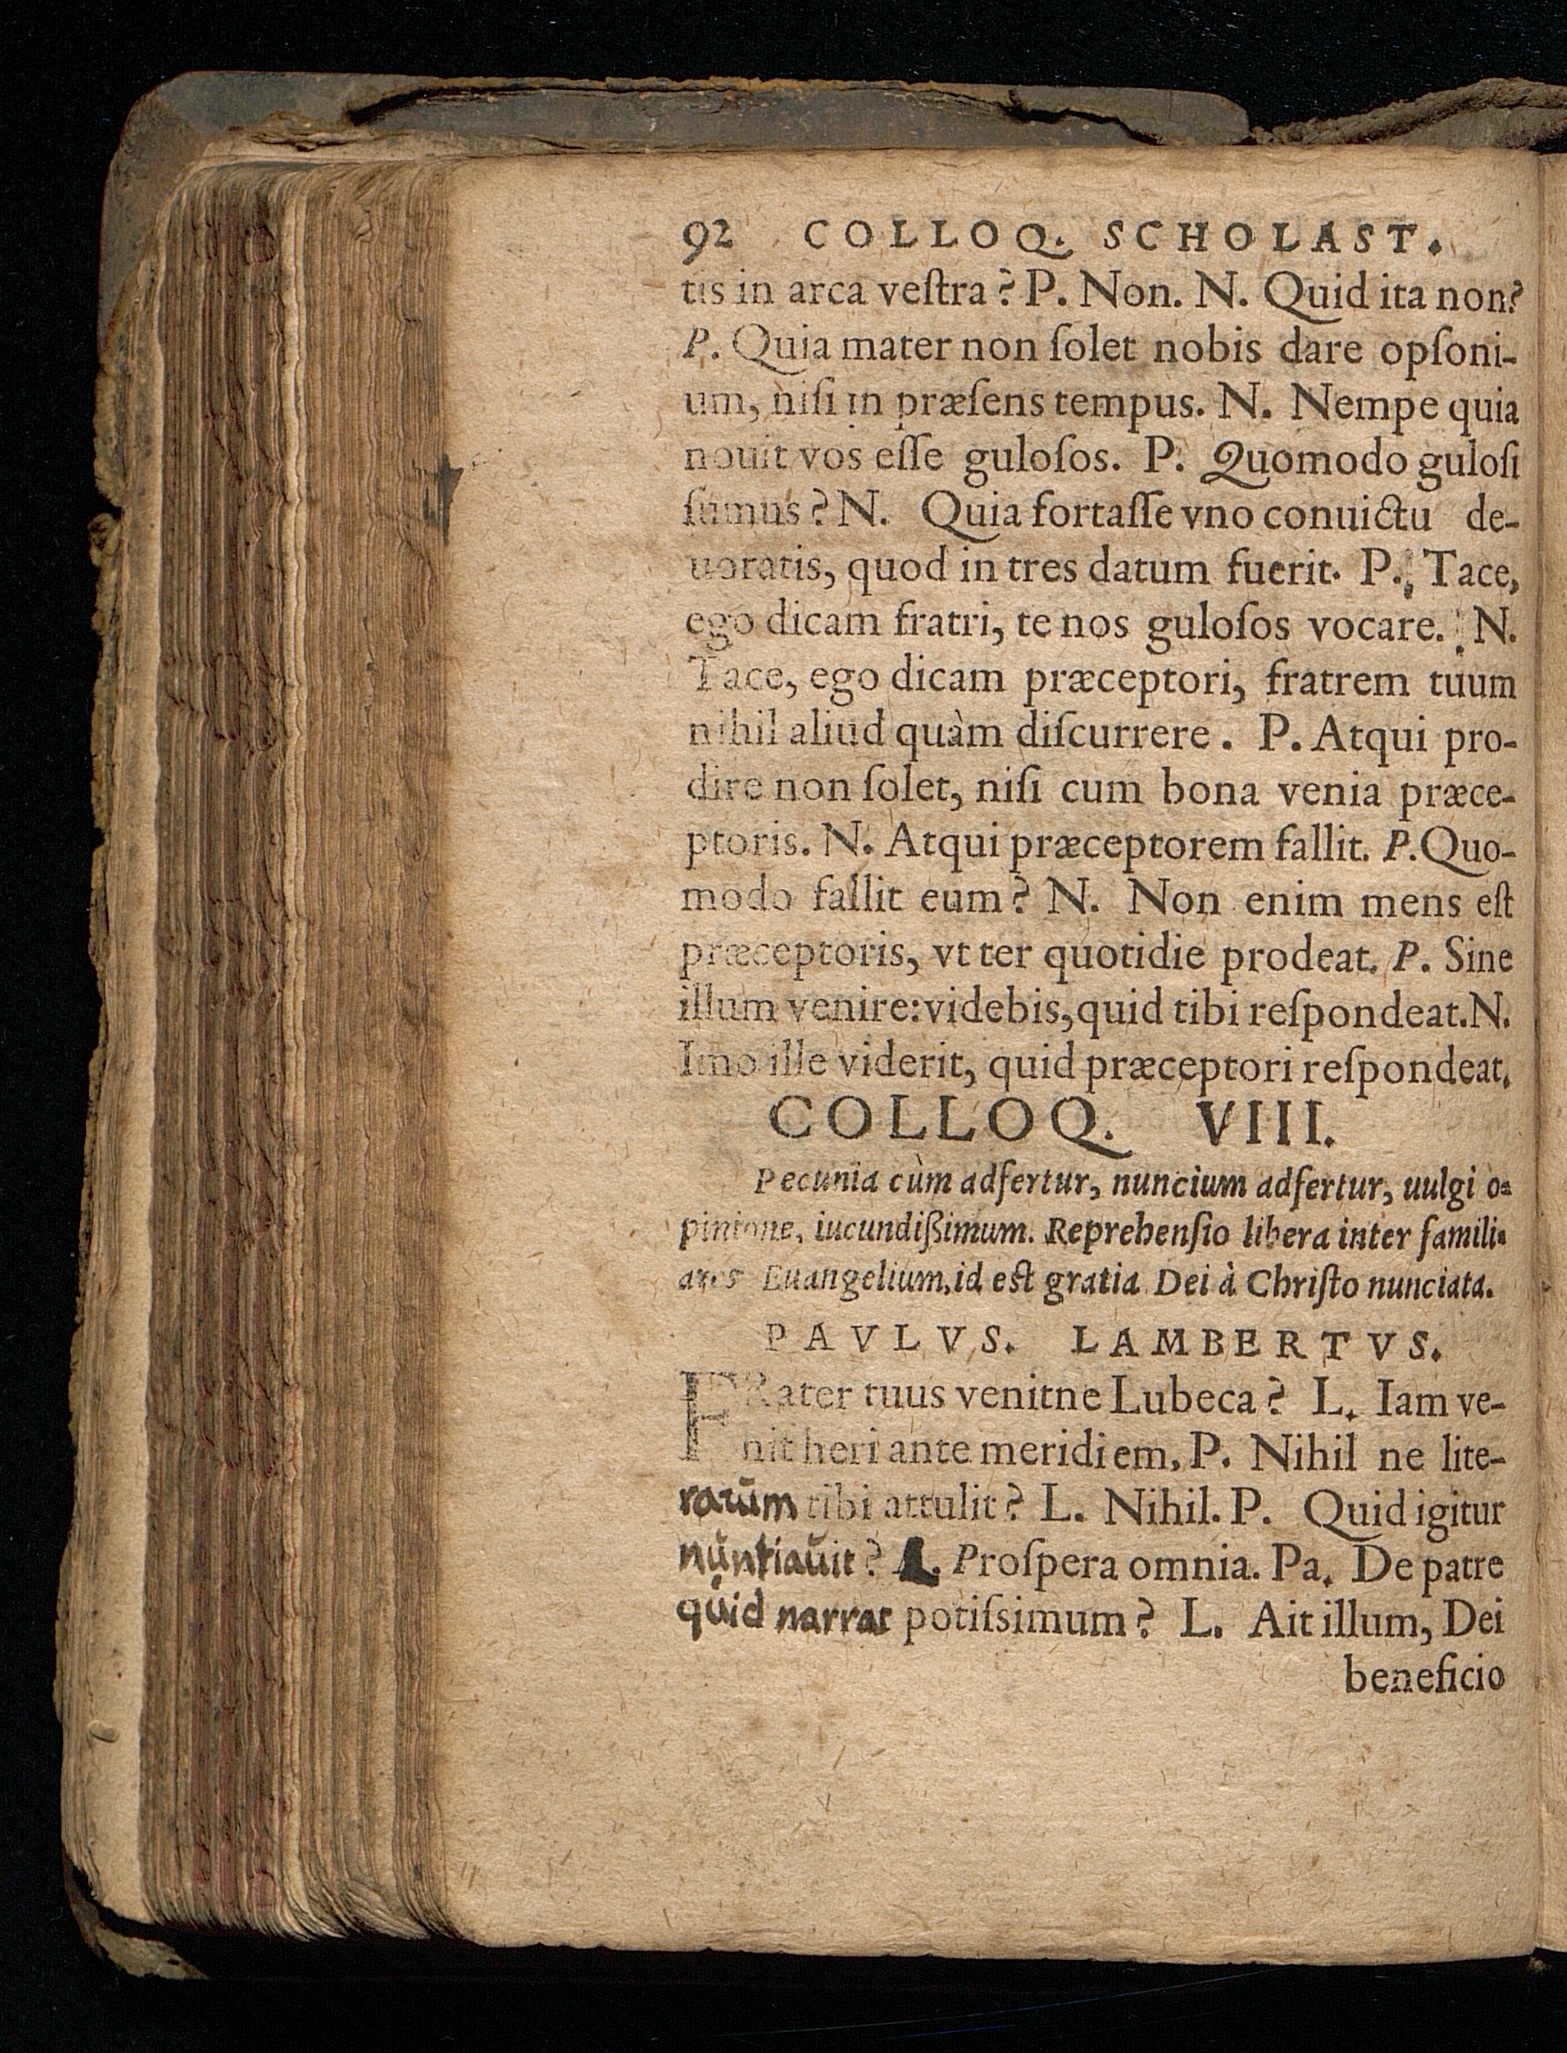 92 COLLOQ. SCHOLAST.
tis in arca veſtra? P. Non. N. Quid ita non?
P. Quia mater non ſolet nobis dare opſoni-
um, niſi in præſens tempus. N. Nempe quia
nouit vos eſſe guloſos. P. Quomodo guloſi
ſumus? N. Quia fortaſſe vno conuictu de-
uoratis, quod in tres datum fuerit. P. Tace,
ego dicam fratri, te nos guloſos vocare. N.
Tace, ego dicam præceptori, fratrem tuum
nihil aliud quàm diſcurrere. P. Atqui pro-
dire non ſolet, niſi cum bona venia præce-
ptoris. N. Atqui præceptorem fallit. P. Quo-
modo fallit eum? N. Non enim mens eſt
præceptoris, vt ter quotidie prodeat. P. Sine
illum venire: videbis, quid tibi reſpondeat. N.
Imo ille viderit, quid præceptori reſpondeat.
COLLOQ. VIII.
Pecunia cùm adfertur, nuncium adfertur, uulgi o-
pinione, iucundißimum. Reprehenſio libera inter famili-
ares Euangelium, id eſt gratia Dei à Chriſto nunciata.
PAVLVS. LAMBERTVS.
FRater tuus venitne Lubeca? L. Iam ve-
nit heri ante meridiem. P. Nihil ne lite-
rarŭm tibi attulit? L. Nihil. P. Quid igitur
nŭntiaŭit? L. Proſpera omnia. Pa. De patre
qŭid narrat potiſsimum? L. Ait illum, Dei
beneficio